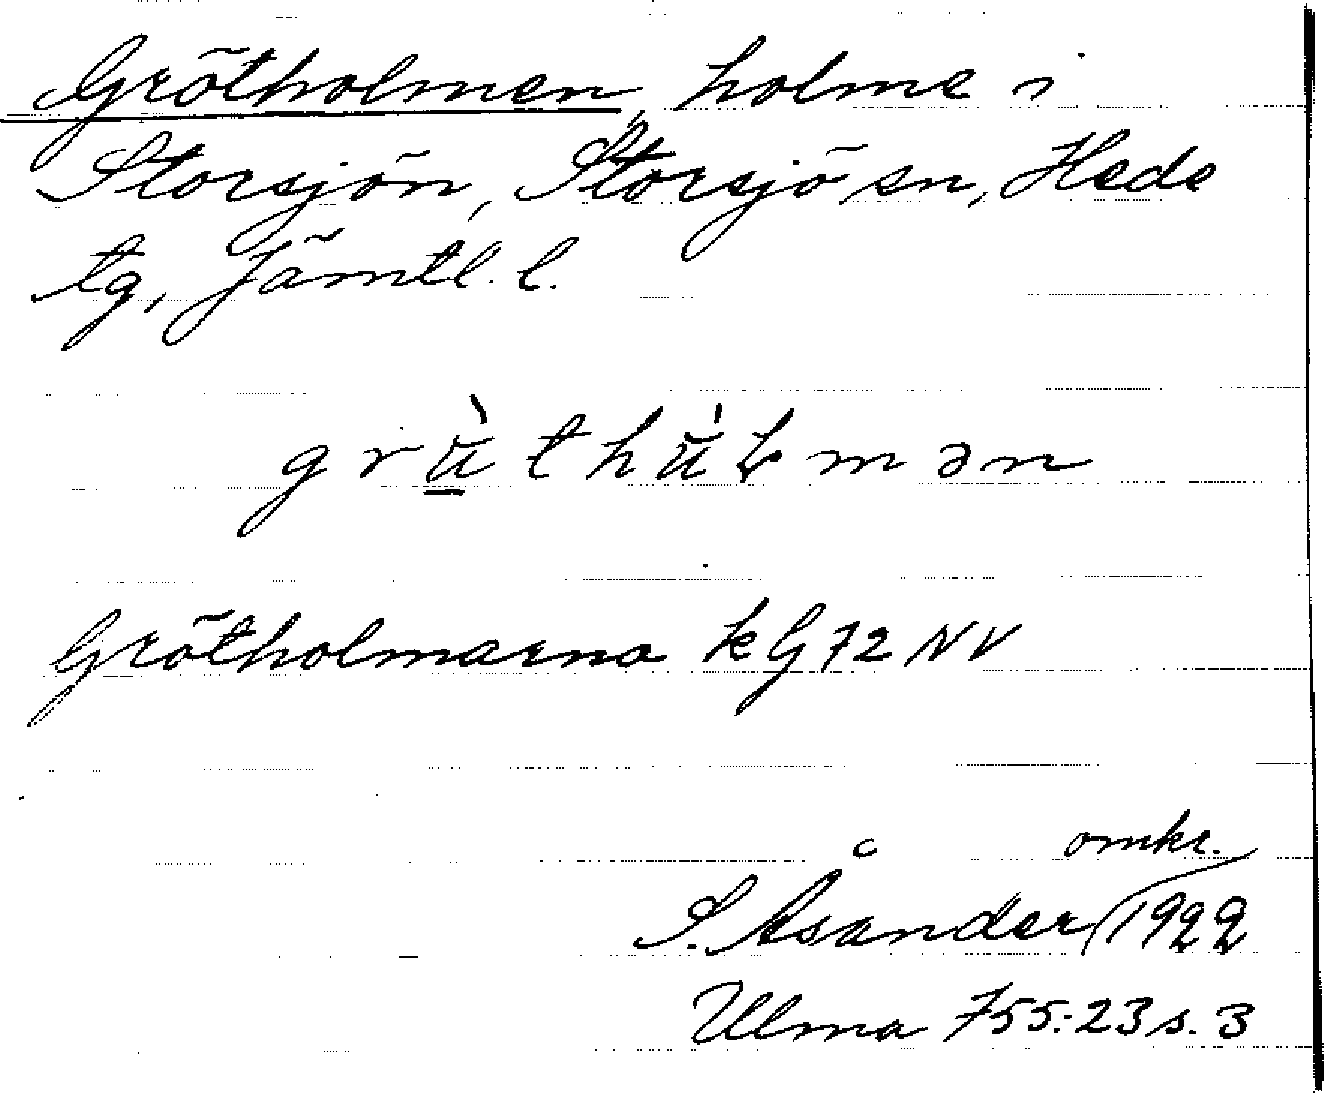 Grötholmen, holme i
Storsjön, Storsjö sn, Hede
tg, Jämtl. l.
Grötholmarna kG 72 NV
omkr.
S. Åsander 1922
Ulma 755:23 s. 3